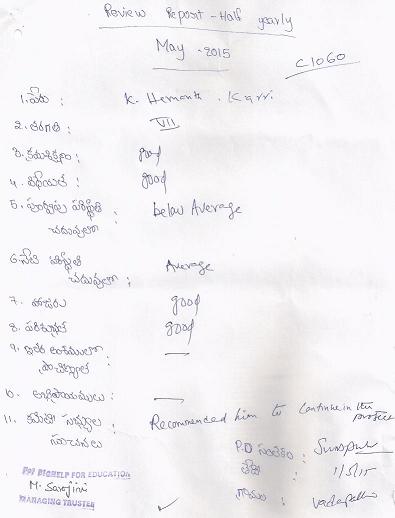 Review Report - Half yearly
May - 2015
C1060
1. పేరు : K. Hemanth. Karri.
2. తరగతి : VII
3. క్రమశిక్షణ : good
4. విధేయత : good
5. పూర్వపు పరిస్థితి చదువులో : below Average
6. నేటి పరిస్థితి చదువులో : Average
7. హాజరు good
8. పరిశుభ్రత good
9. ఇతర అంశములలో : —
10. అభిప్రాయములు : —
11. కమిటీ సభ్యుల సూచనలు Recommended him to continue in the project
P.D సంతకం :
తేది : 1/5/15
గ్రామం :
For BIGHELP FOR EDUCATION
M. Sarojini
MANAGING TRUSTEE